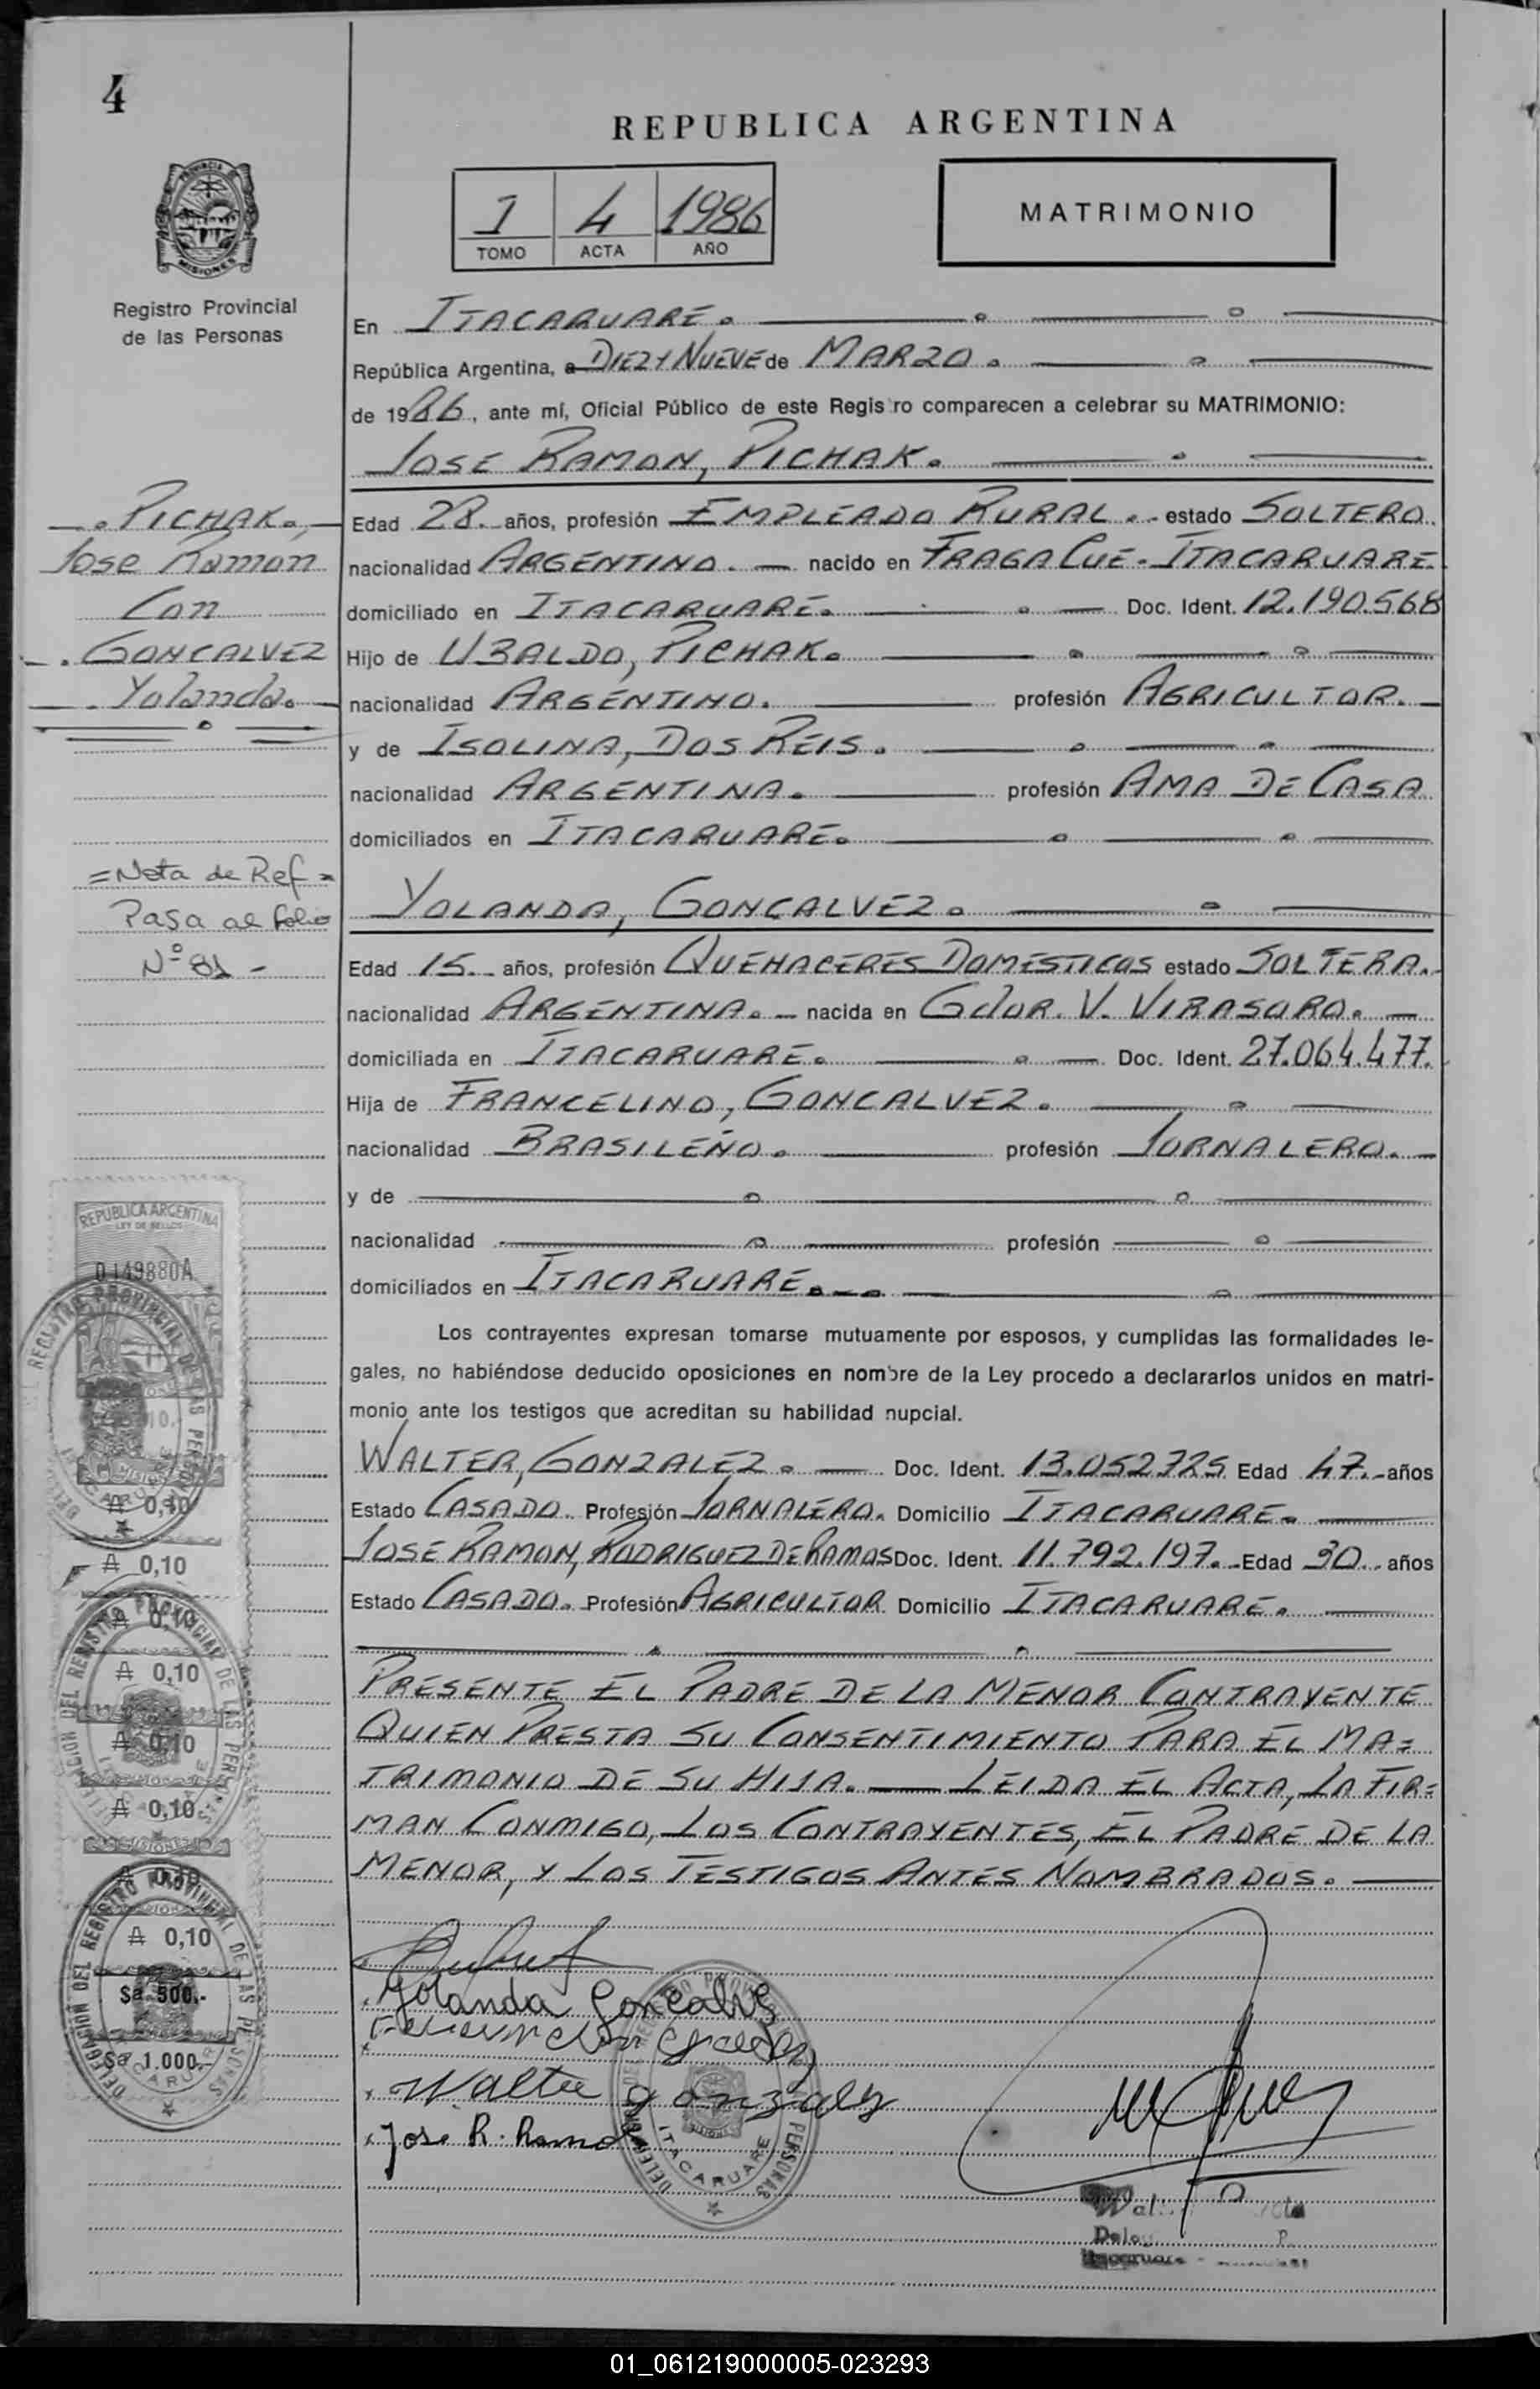 4
REPUBLICA ARGENTINA
1 4 1986
TOMO ACTA AÑO
MATRIMONIO
PROVINCIA DE
MISIONES
Registro Provincial
de las Personas
En ITACARUARE.
República Argentina, a DIEZ Y NUEVE de MARZO.
de 1986, ante mí, Oficial Público de este Registro comparecen a celebrar su MATRIMONIO:
JOSE RAMON, PICHAK.
PICHAK.
Jose Ramon
Con
GONCALVEZ
Yolanda.
Edad 28. años, profesión EMPLEADO RURAL. estado SOLTERO.
nacionalidad ARGENTINO. nacido en FRAGA CUE. ITACARUARE.
domiciliado en ITACARUARE. Doc. Ident. 12.190.568
Hijo de UBALDO, PICHAK.
nacionalidad ARGENTINO. profesión AGRICULTOR.
y de ISOLINA, DOS REIS.
nacionalidad ARGENTINA. profesión AMA DE CASA
domiciliados en ITACARUARE.
=Nota de Ref=
Pasa al folio
Nº 81 -
YOLANDA, GONCALVEZ.
Edad 15. años, profesión QUEHACERES DOMESTICOS estado SOLTERA.
nacionalidad ARGENTINA. nacida en Gdor. V. VIRASORO.
domiciliada en ITACARUARE. Doc. Ident. 27.064.477.
Hija de FRANCELINO, GONCALVEZ.
nacionalidad BRASILEÑO. profesión JORNALERO.
y de
nacionalidad profesión
domiciliados en ITACARUARE.
Los contrayentes expresan tomarse mutuamente por esposos, y cumplidas las formalidades le-
gales, no habiéndose deducido oposiciones en nombre de la Ley procedo a declararlos unidos en matri-
monio ante los testigos que acreditan su habilidad nupcial.
WALTER, GONZALEZ. Doc. Ident. 13.052.725 Edad 47. años
Estado CASADO. Profesión JORNALERO. Domicilio ITACARUARE.
JOSE RAMON, RODRIGUEZ DE RAMOS Doc. Ident. 11.792.197. Edad 30. años
Estado CASADO. Profesión AGRICULTOR Domicilio ITACARUARE.
PRESENTE EL PADRE DE LA MENOR CONTRAYENTE
QUIEN PRESTA SU CONSENTIMIENTO PARA EL MA=
TRIMONIO DE SU HIJA. LEIDA EL ACTA, LA FIR=
MAN CONMIGO, LOS CONTRAYENTES, EL PADRE DE LA
MENOR, Y LOS TESTIGOS ANTES NOMBRADOS.
REPUBLICA ARGENTINA
LEY DE SELLOS
0149880A
DELEGACION DEL REGISTRO PROVINCIAL DE LAS PERSONAS
ITACARUARE
₳ 0,10
₳ 0,10
₳ 0,10
₳ 0,10
₳ 0,10
₳ 0,10
₳ 0,10
₳ 0,10
$a 500.-
$a 1.000.-
Yolanda Goncalvez
Walter gonzalez
Jose R. Ramo
DELEGACION DEL REGISTRO PROVINCIAL DE LAS PERSONAS
ITACARUARE
01_061219000005-023293